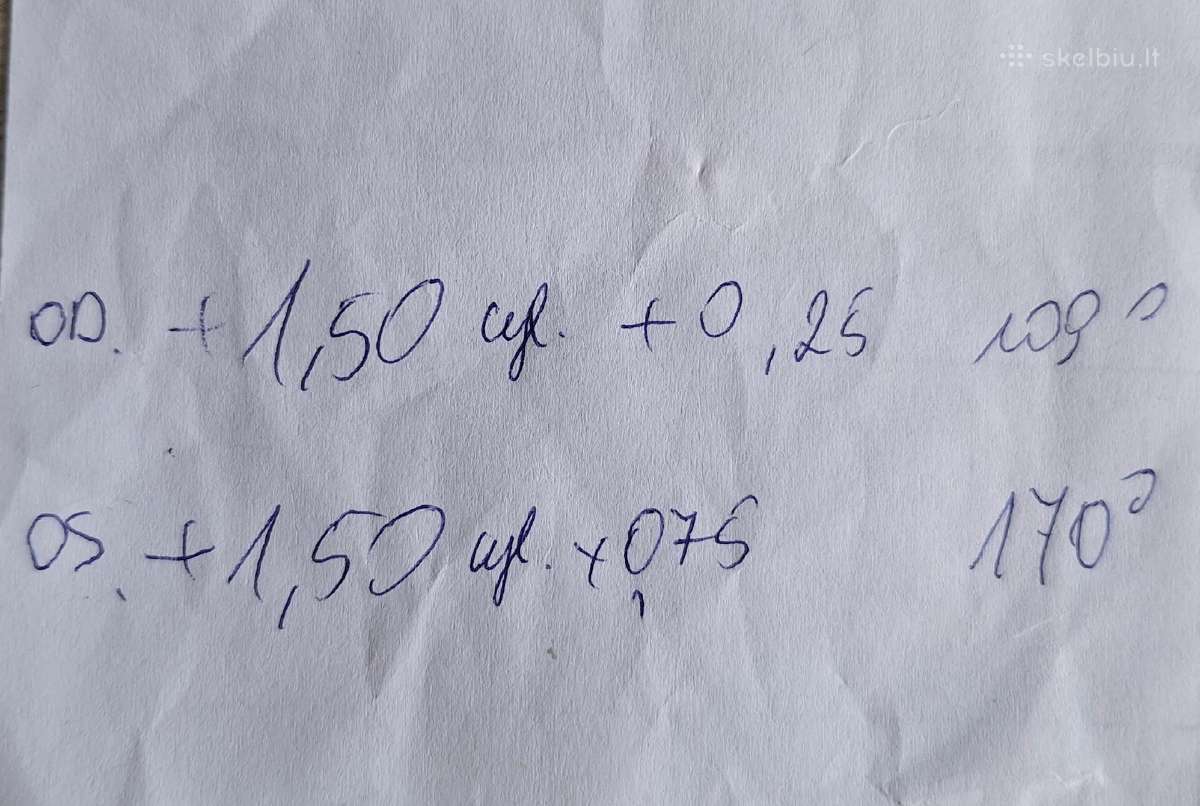 skelbiu.lt
OD. +1,50 cyl. +0,25 109°
OS. +1,50 cyl. +0,75 170°